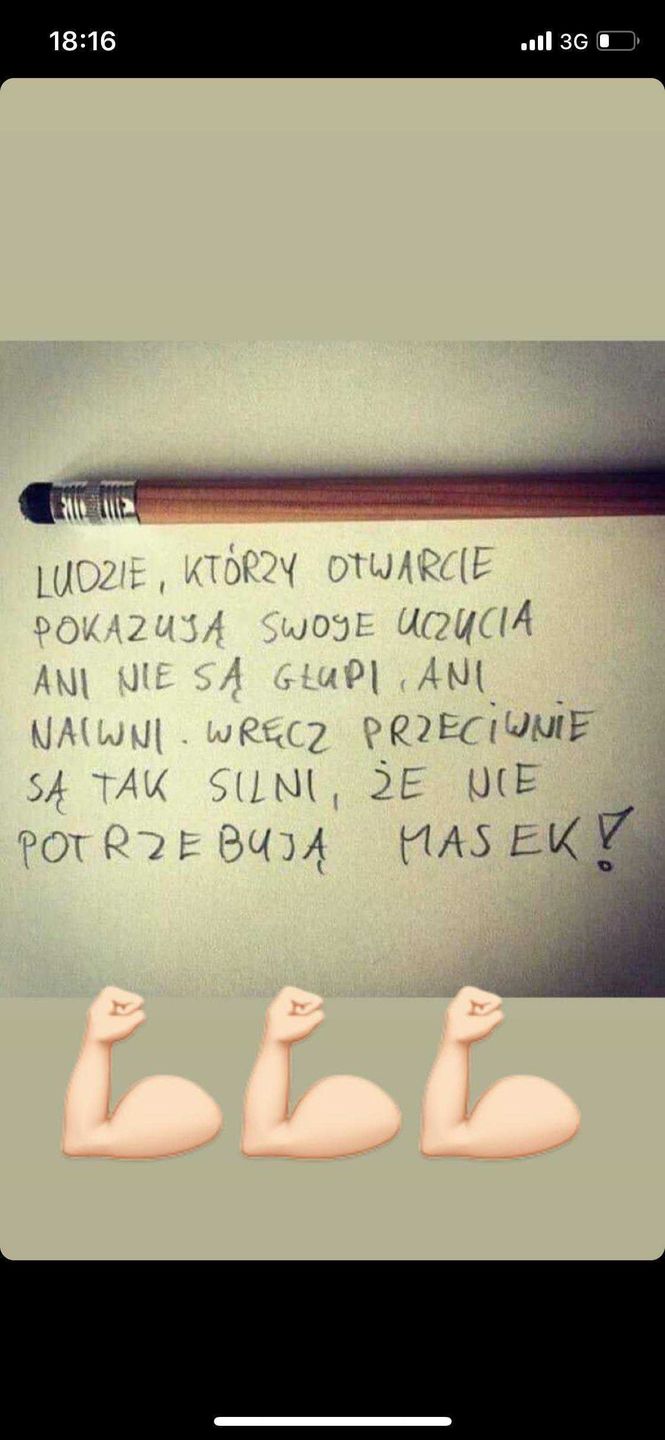 18:16
3G
LUDZIE, KTÓRZY OTWARCIE
POKAZUJĄ SWOJE UCZUCIA
ANI NIE SĄ GŁUPI, ANI
NAIWNI. WRĘCZ PRZECIWNIE
SĄ TAK SILNI, ŻE NIE
POTRZEBUJĄ MASEK!